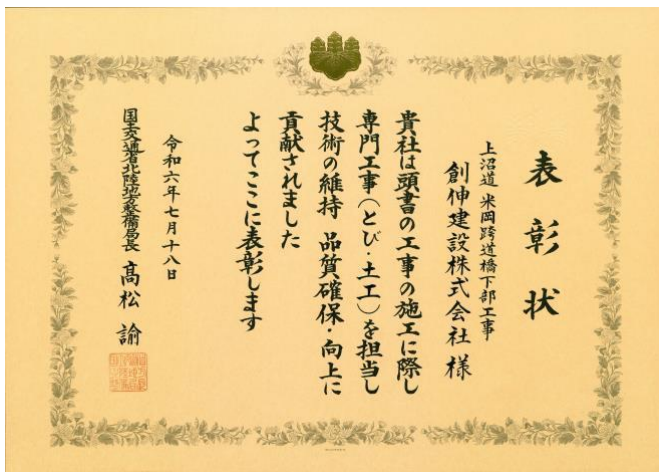 表彰状
上沼道 米岡跨道橋下部工事
創伸建設株式会社 様
貴社は頭書の工事の施工に際し
専門工事(とび・土工)を担当し
技術の維持 品質確保・向上に
貢献されました
よってここに表彰します
令和六年七月十八日
国土交通省北陸地方整備局長 髙松 諭